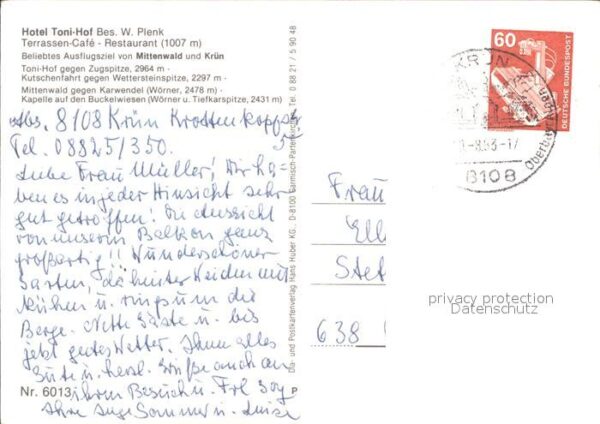 Hotel Toni-Hof Bes. W. Plenk
Terrassen-Café - Restaurant (1007 m)
Beliebtes Ausflugsziel von Mittenwald und Krün
Toni-Hof gegen Zugspitze, 2964 m -
Kutschenfahrt gegen Wettersteinspitze, 2297 m -
Mittenwald gegen Karwendel (Wörner, 2478 m) -
Kapelle auf den Buckelwiesen (Wörner u. Tiefkarspitze, 2431 m)
Abs. 8108 Krün Krottenkopfstr
Tel. 08825/350.
Liebe Frau Müller! Wir ha-
ben es in jeder Hinsicht sehr
gut getroffen! Die Aussicht
von unserm Balkon ganz
großartig!! Wunderschöner
Garten, dahinter Weiden mit
Kühen u. ringsum die
Berge. Nette Gäste u. bis
jetzt gutes Wetter. Ihnen alles
Gute u. herzl. Grüße auch an
ihren Besuch u. Frl
Ihre Inge Sommer u. Luise
Nr. 6013
P
Dia- und Postkartenverlag Hans Huber KG., D-8100 Garmisch-Partenkirchen, Tel. 0 88 21 / 5 90 48
60
DEUTSCHE BUNDESPOST
KRÜN
-8.83-17
8108
Frau
Ell
Stet
638
privacy protection
Datenschutz